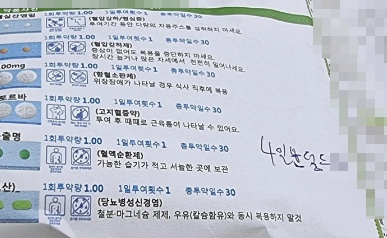 실산엠
1회투약량1.00 1일투여횟수1 총투약일수30
(혈압강하/협심증)
투여기간 중엔 다량의 자몽주스를 섭취하지 마세요.
1회투약량1.00 1일투여횟수1 총투약일수30
(혈압강하제)
증상이 없어도 복용을 중단하지 마세요.
앉거나 누운 자세에서 천천히 일어나세요.
00mg
1회투약량1.00 1일투여횟수1 총투약일수30
(항혈소판제)
위장장애가 나타날 경우 식사 직후에 복용
토르바
1회투약량1.00 1일투여횟수1 총투약일수30
(고지혈증약)
투여 후 때때로 근육통이 나타날 수 있어요.
출명
1회투약량1.00 1일투여횟수1 총투약일수30
(혈액순환제)
가능한 습기가 적고 서늘한 곳에 보관
4일분 덜드
산)
1회투약량1.00 1일투여횟수1 총투약일수30
(당뇨병성신경염)
철분·마그네슘 제제, 우유(칼슘함유)와 동시 복용하지 말것